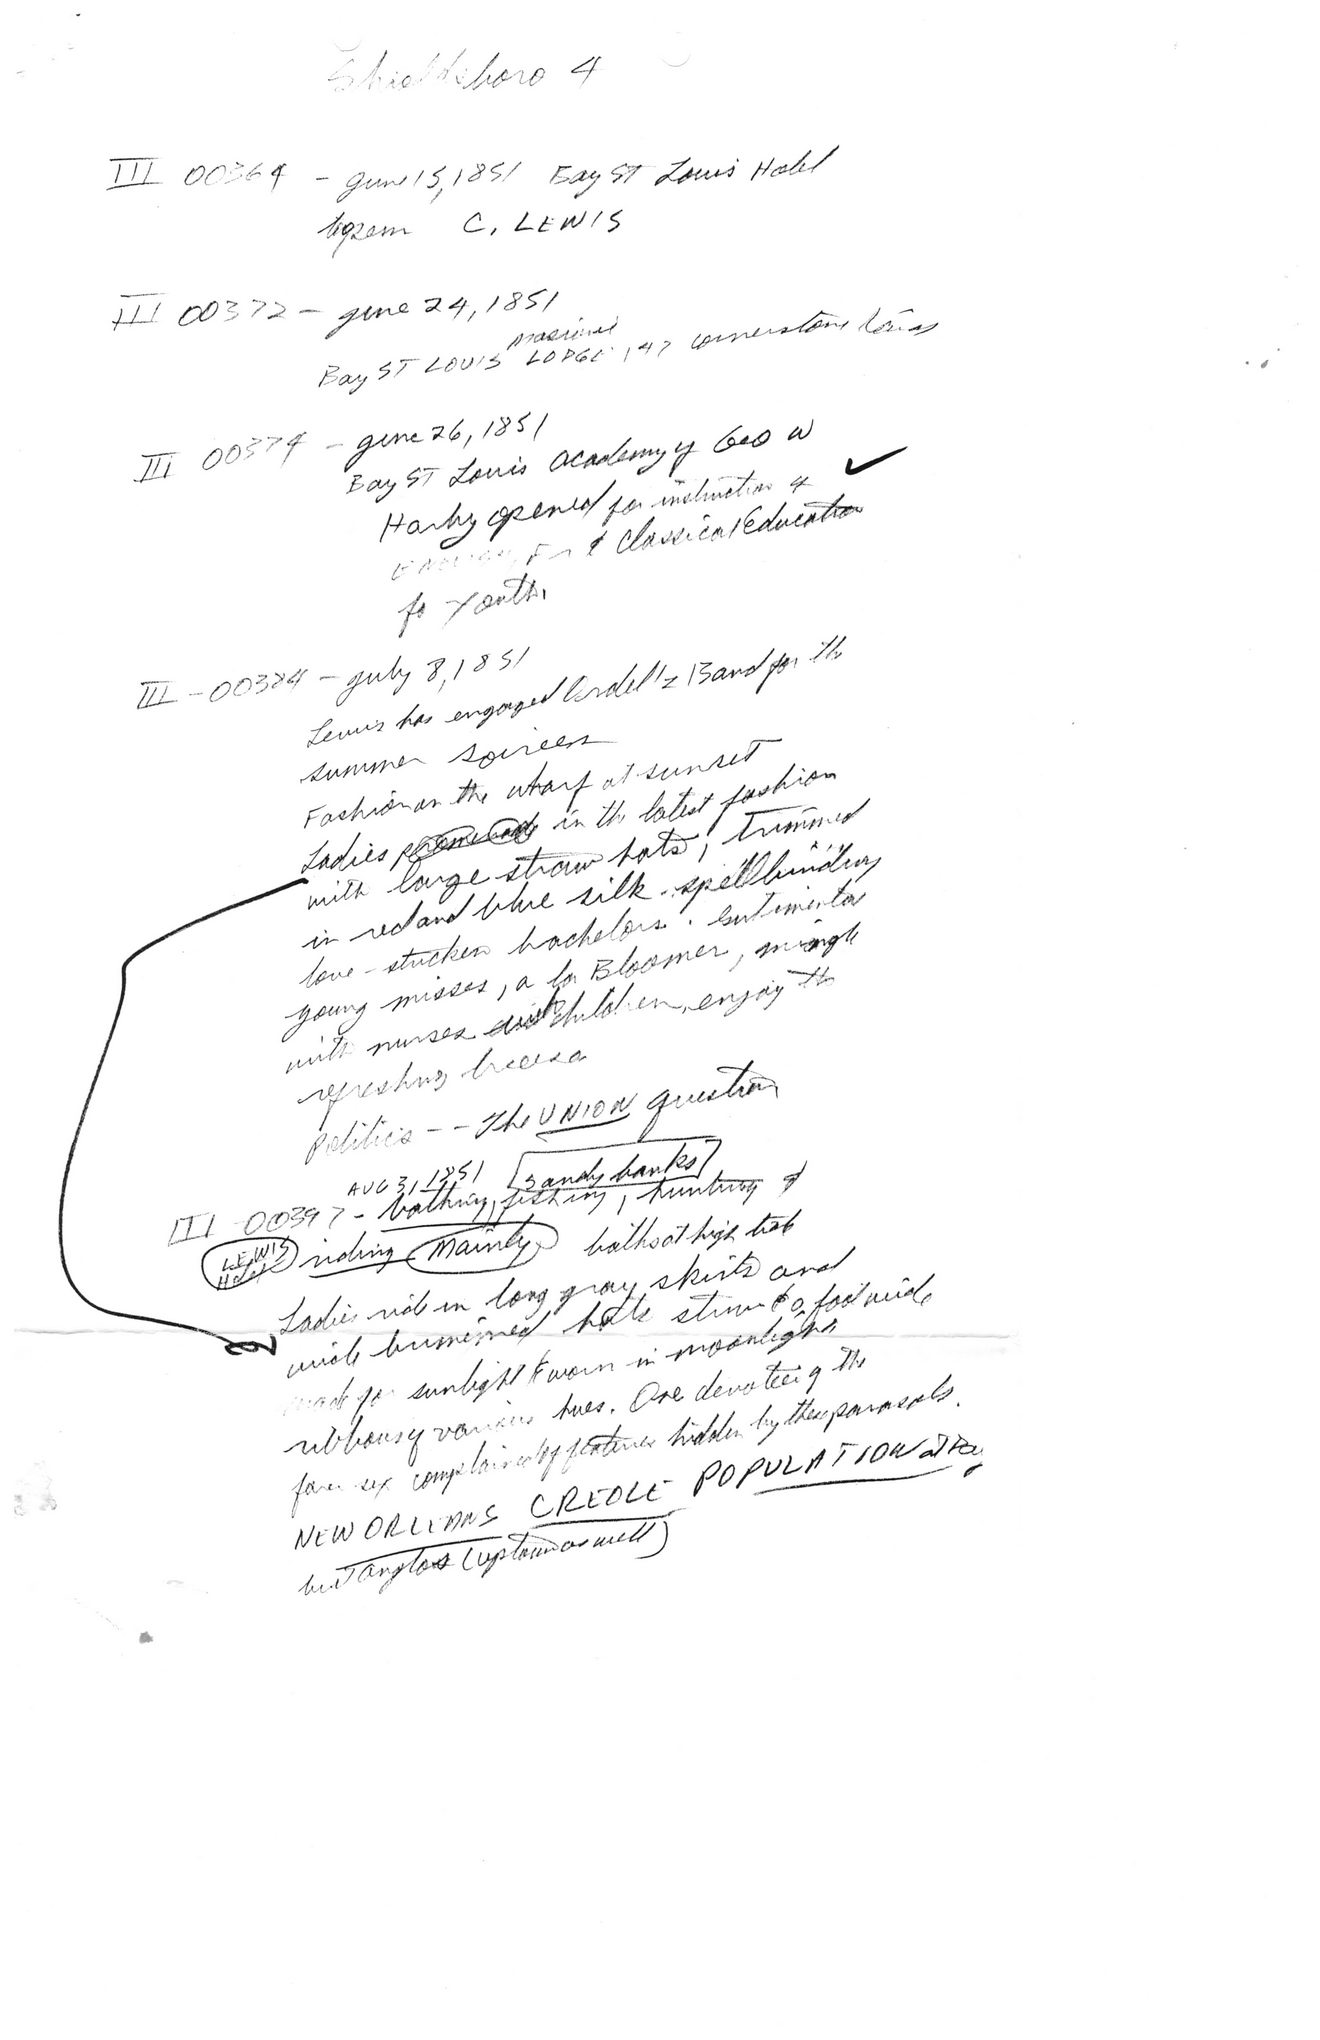 Shieldsboro 4
III 00364 - June 15, 1851 Bay ST Louis Hotel
C. LEWIS
III 00372 - June 24, 1851
Bay ST LOUIS LODGE, cornerstone
III 00374 - June 26, 1851
Bay ST Louis Academy of Geo W
Harby opened for instruction
& Classical Education
for Youth.
III - 00384 - July 8, 1851
Lewis has engaged Band for the
summer soirees
Fashion on the wharf at sunset
Ladies promenade in the latest fashion
with large straw hats, trimmed
in red and blue silk - spellbinding
love-stricken bachelors. Sentimental
young misses, a la Bloomer, mingle
with nurses children, enjoy the
refreshing breeze
Politics -- The UNION question
AUG 31, 1851 [sandy banks]
III 00397 - bathing, fishing, hunting &
LEWIS Hotel riding mainly baths at high tide
Ladies ride in long gray skirts and
wide brimmed hats foot wide
made for sunlight & worn in moonlight
ribbons of various hues. One devotee of the
fair sex complained of features hidden by these parasols.
NEW ORLEANS CREOLE POPULATION at Bay
but Anglos (uptown as well)